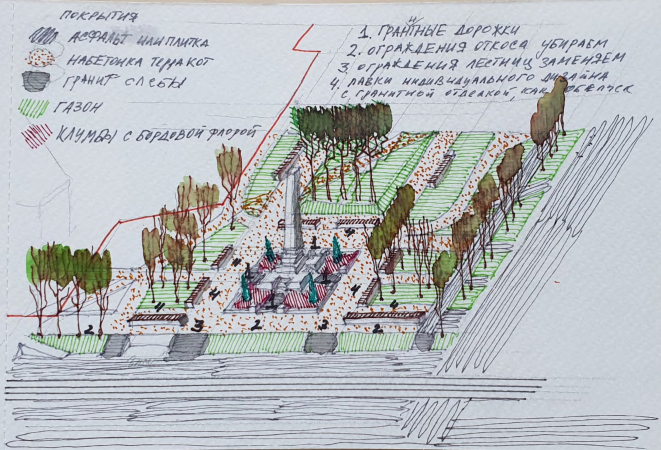 ПОКРЫТИЯ
АСФАЛЬТ ИЛИ ПЛИТКА
НАБЕТОНКА ТЕРРАКОТ
ГРАНИТ СЛЕБЫ
ГАЗОН
КЛУМБЫ С БОРДОВОЙ ФЛОРОЙ
1. ГРАНИТНЫЕ ДОРОЖКИ
2. ОГРАЖДЕНИЯ ОТКОСА УБИРАЕМ
3. ОГРАЖДЕНИЯ ЛЕСТНИЦ ЗАМЕНЯЕМ
4. ЛАВКИ ИНДИВИДУАЛЬНОГО ДИЗАЙНА
С ГРАНИТНОЙ ОТДЕЛКОЙ, КАК ОБЕЛИСК
1
4
4
4
4
4
2
3
2
3
2